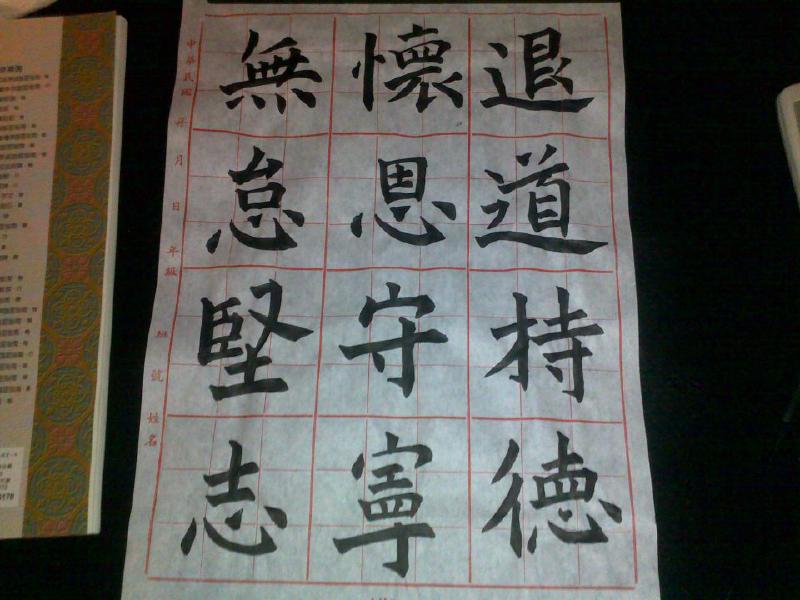 退道持德
懷恩守寧
無怠堅志
中華民國 年 月 日 年級 班 號 姓名